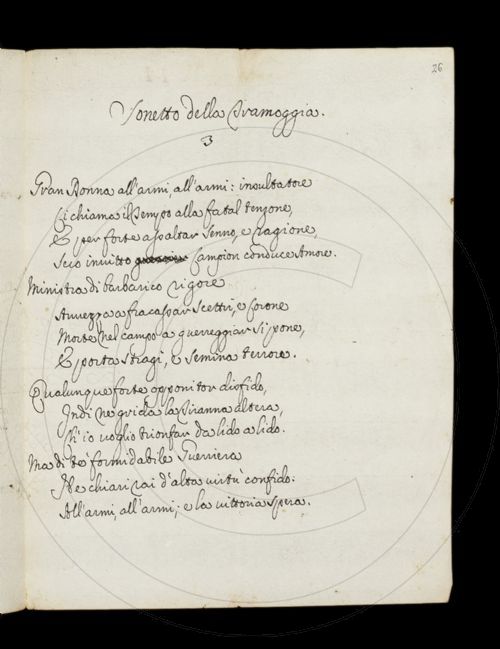 26
Sonetto della Tramoggia.
3
Gran Donna all'armi, all'armi: insultatore
Ti chiama il Tempo alla fatal tenzone,
E per forte assaltar Senno, e Ragione,
Seco invitto Campion conduce Amore.
Ministra di barbarico rigore
Avvezza a fracassar Scettri, e Corone
Morte nel campo a guerreggiar si pone,
E porta Stragi, e semina terrore.
Qualunque forte oppositor disfido,
Indi ne grida la Tiranna altera,
Ch'io voglio trionfar da lido a lido.
Ma di te formidabile Guerriera
Ne chiari rai d'alta virtù confido:
All'armi, all'armi; e la vittoria spera.